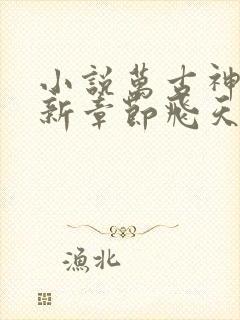 小説萬古神
新章節飛天
漁北